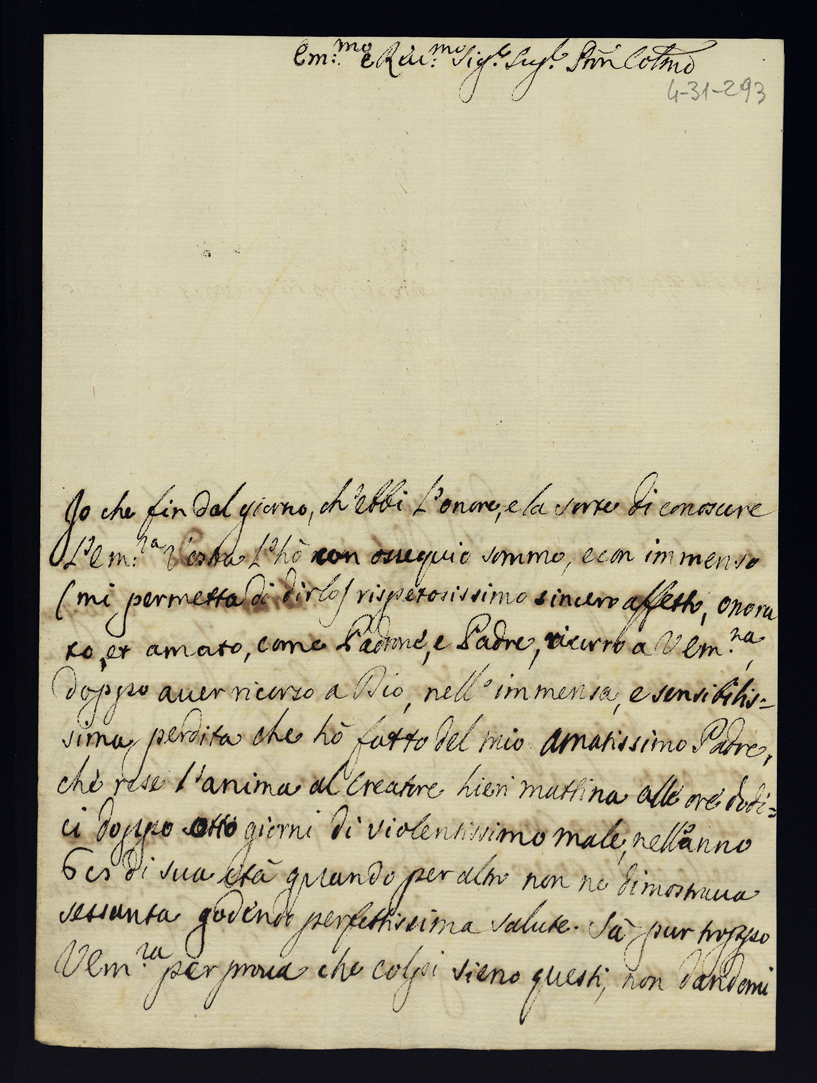 Em:mo e Re:mo Sig:r Sig:r Pron Colmo
4-31-293
Jo che fin dal giorno, ch'ebbi L'onore, e la sorte di conoscere
L'Em:za V'ostra L'hò con ossequio sommo, e con immenso
(mi permetta di dirlo) rispetosissimo sincero affetto, onora
to, et amato, come Padrone, e Padre, ricorro a V Em:za,
doppo auer ricorso a Dio, nell'immensa, e sensibilis=
sima perdita che hò fatto del mio amatissimo Padre,
che rese l'anima al Creatore hieri mattina alle ore dodi=
ci doppo otto giorni di violentissimo male, nell'anno
di sua età quando per altro non ne dimostraua
sessanta godendo perfettissima salute. Sà pur troppo
V Em:za per proua che colpi sieno questi, non dandomi